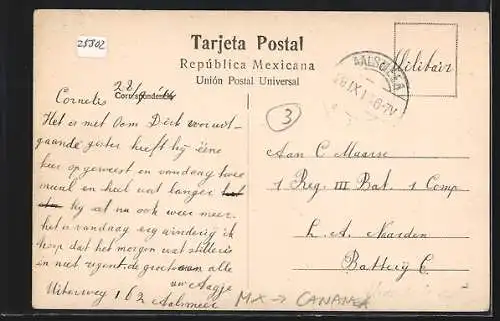 25302
Tarjeta Postal
República Mexicana
Unión Postal Universal
Militair
AALSMEER
28 IX 1 6-7V
28/9 '14
Cornelis
Correspondencia
3
Het is met Oom Dirk vooruit
gaande gister heeft hij eene
keer op geweest en vandaag twee
maal en heel wat langer
hij zat nu ook weer meer
het is vandaag erg winderig ik
hoop dat het morgen wat stiller is
en niet regent. de groeten aan alle
uw Aagje
Uiterweg 162 Aalsmeer
Aan C Maarse
1 Reg. III Bat. 1 Comp
L. A. Naarden
Battery C.
MX → CANANEA